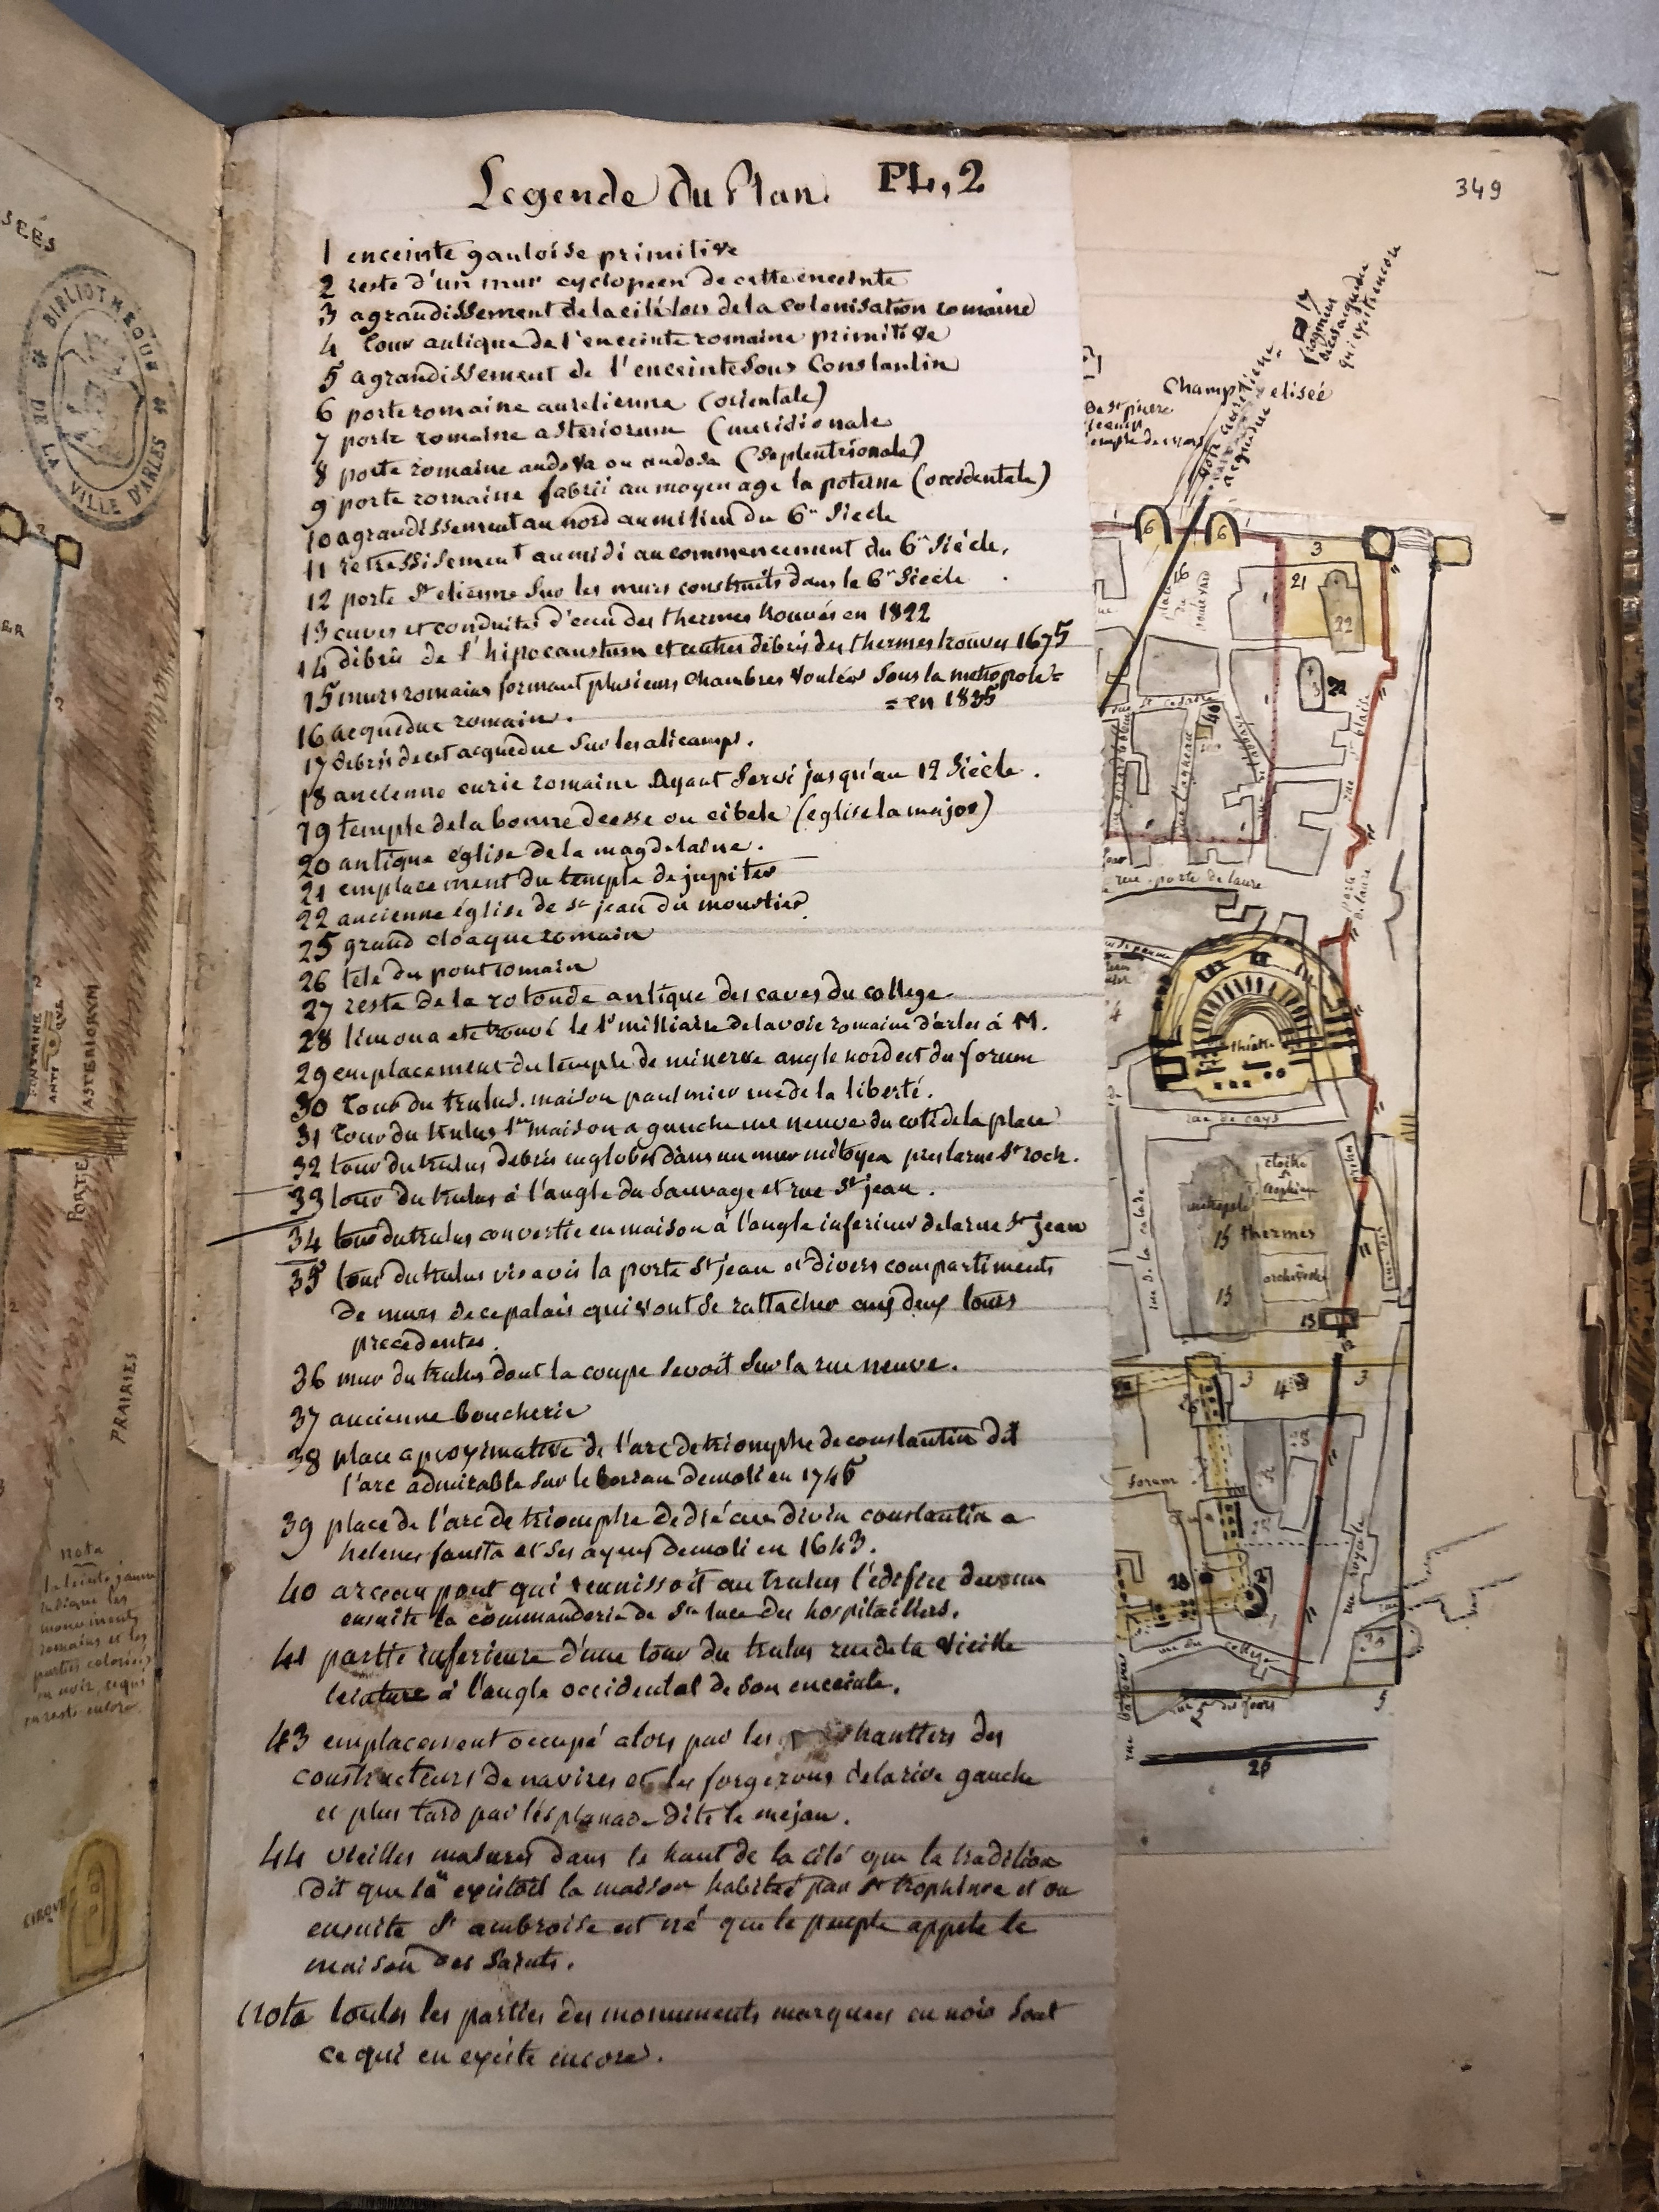 Legende du Plan. PL, 2
349
1 enceinte gauloise primitive
2 reste d'un mur cyclopeen de cette enceinte
3 agrandissement de la cité lors de la colonisation romaine
4 tour antique de l'enceinte romaine primitive
5 agrandissement de l'enceinte sous Constantin
6 porte romaine aurelienne (orientale)
7 porte romaine asteriorum (meridionale
8 porte romaine (septentrionale)
9 porte romaine fabrii au moyen age la poterne (occidentale)
10 agrandissement au nord au milieu du 6me Siecle
11 retressissement au midi au commencement du 6me Siécle.
12 porte St etienne sur les murs construits dans le 6me Siecle
13 cuves et conduites d'eau des thermes trouvés en 1822
14 débris de l'hipocaustum et autres débris des thermes trouvés 1675
15 murs romains formant plusieurs chambres voutées sous la metropole =
= en 1835
16 acqueduc romain.
17 débris de cet acqueduc sur les alicamps.
18 ancienne curie romaine Ayant servi jusqu'au 12 Siécle.
19 temple de la bonne deesse ou cibele (eglise la major)
20 antique église de la magdelaine.
21 emplacement du temple de jupiter
22 ancienne église de st jean du moustier
25 grand cloaque romain
26 tete du pont romain
27 reste de la rotonde antique des caves du college.
28 lieu ou a ete trouvé le 1er milliaire de la voie romaine d'arles à M.
29 emplacement du temple de minerve angle nord est du forum
30 tour du trulus. maison paulmier rue de la liberté.
31 tour du trulus 1ere maison a gauche rue neuve du coté de la place
32 tour du trulus debris englobés dans un mur mitoyen pres la rue St roch.
33 tour du trulus à l'angle du Sauvage et rue St jean.
34 tour du trulus convertie en maison à l'angle inferieur de la rue St jean
35 tour du trulus vis avis la porte St jean et divers compartiments
de murs de ce palais qui vont se rattacher aux deux tours
precedentes.
36 mur du trulus dont la coupe se voit sur la rue neuve.
37 ancienne boucherie
38 place aproximative de l'arc de triomphe de constantin dit
l'arc admirable sur le demoli en 1745
39 place de l'arc de triomphe dedié au divin constantin a
helene, fausta et ses ayeux demoli en 1643.
40 arceau pont qui reunissoit au trulus l'édifice devenu
ensuite la commanderie de Ste luce des hospitaillers.
41 partie inferieure d'une tour du trulus rue de la vieille
à l'angle occidental de son enceinte.
43 emplacement occupé alors par les chantiers des
constructeurs de navires et les forgerons de la rive gauche
et plus tard par l'esplanade dite le mejan.
44 vieilles masures dans le haut de la cité que la tradition
dit que là existoit la maison habitée par St trophime et ou
ensuite St ambroise est né que le peuple appele la
maison des Saints.
nota toutes les parties des monuments marquées en noir sont
ce qui en existe encore.
BIBLIOTHEQUE DE LA VILLE D'ARLES
ASTERIORUM
PORTE
PRAIRIES
nota
la teinte jaune
indique les
monuments
romains et les
parties coloriées
en noir ce qui
en reste encore
CIRQUE
17
fragment
d'acqueduc
qui existe encore
Champ elisée
de St pierre
6 6 3
16
21
22
40
rue porte de laure
théatre
rue de cays
rue de la calade
cloitre
St trophime
metropole
15 thermes
archevéché
15
13
3 4 3
forum
28
rue royale
rue du college
5
26